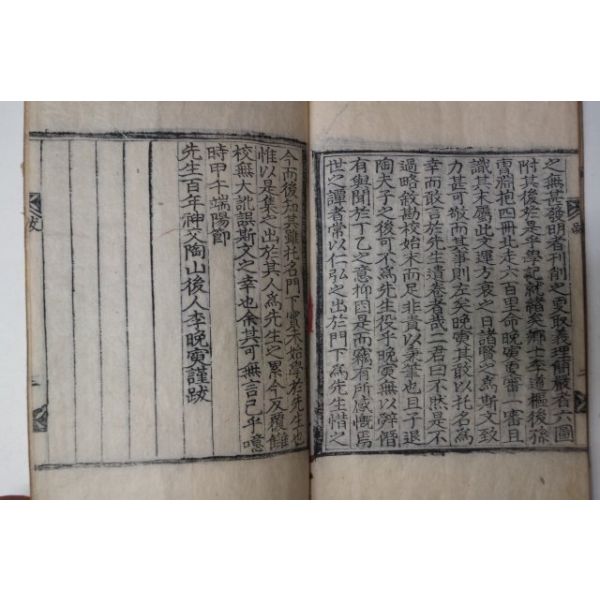 之無甚發明者刊削之更取義理簡嚴者六圖
附其後於是乎學記就緒矣鄕士李道樞後孫
曺淵抱四冊北走六百里命晩寅更審一審且
識其末屬此文運方衰之日諸賢之爲斯文致
力甚可敬而其事則左矣晩寅其敢以托名爲
幸而敢言於先生遺卷者哉二君曰不然是不
過略敍勘校始末而足非貴以秉筆也且子退
陶夫子之後可不爲先生役乎晩寅無以辭偕
有與聞於丁乙之意抑因是而竊有所感慨焉
世之譚者常以仁弘之出於門下爲先生惜之
今而後知其雖托名門下實未始學於先生也
惟以是集之出於其人爲先生之累今反覆讎
校無大訛誤斯文之幸也余其可無言已乎噫
時甲午端陽節
先生百年神交陶山後人李晩寅謹跋
跋